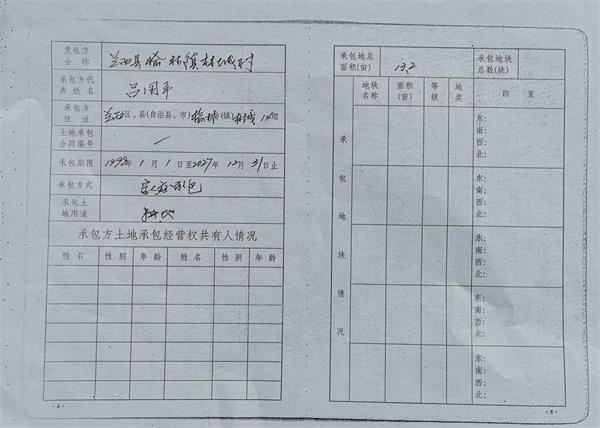 发包方全称 兰西县榆林镇林城村
承包方代表姓名 吕闰年
承包方住址 兰西区、县(自治县、市)榆林(镇)林城 组
土地承包合同编号 /
承包期限 1998年1月1日至2027年12月31日止
承包方式 家庭承包
承包土地用途
承包方土地承包经营权共有人情况
姓名 性别 年龄 姓名 性别 年龄
·4·
承包地总面积(亩) 13.2 承包地块总数(块)
承包地块情况
地块名称 面积(亩) 等级 地类 四至
东:
南:
西:
北:
东:
南:
西:
北:
东:
南:
西:
北:
东:
南:
西:
北:
东:
南:
西:
北:
·5·